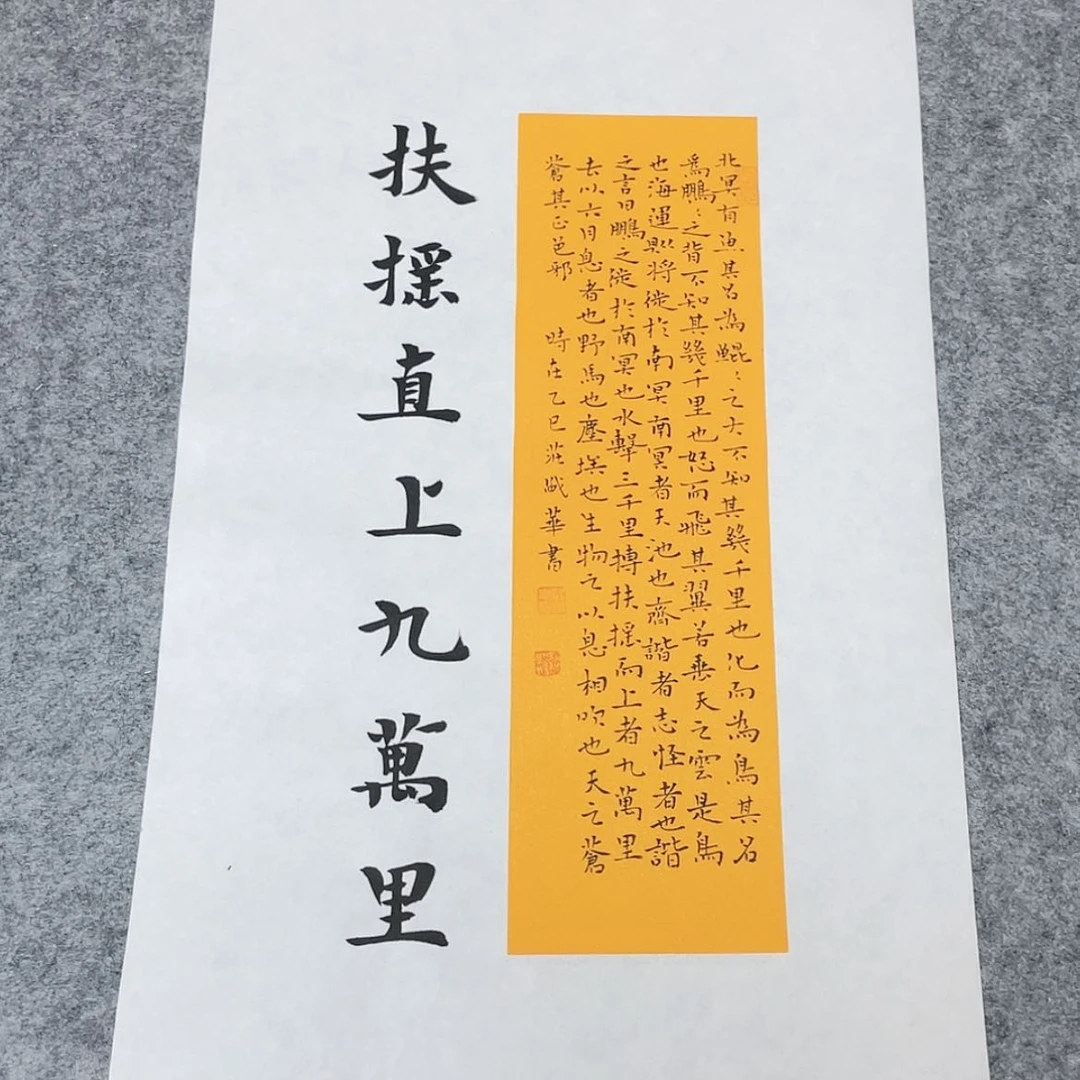 北冥有魚其名為鯤〻之大不知其幾千里也化而為鳥其名
為鵬〻之背不知其幾千里也怒而飛其翼若垂天之雲是鳥
也海運則將徙於南冥南冥者天池也齊諧者志怪者也諧
之言曰鵬之徙於南冥也水擊三千里摶扶搖而上者九萬里
去以六月息者也野馬也塵埃也生物之以息相吹也天之蒼
蒼其正色邪 時在乙巳莊華書
扶搖直上九萬里